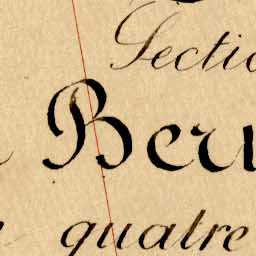 Sectio
Beru
quatre